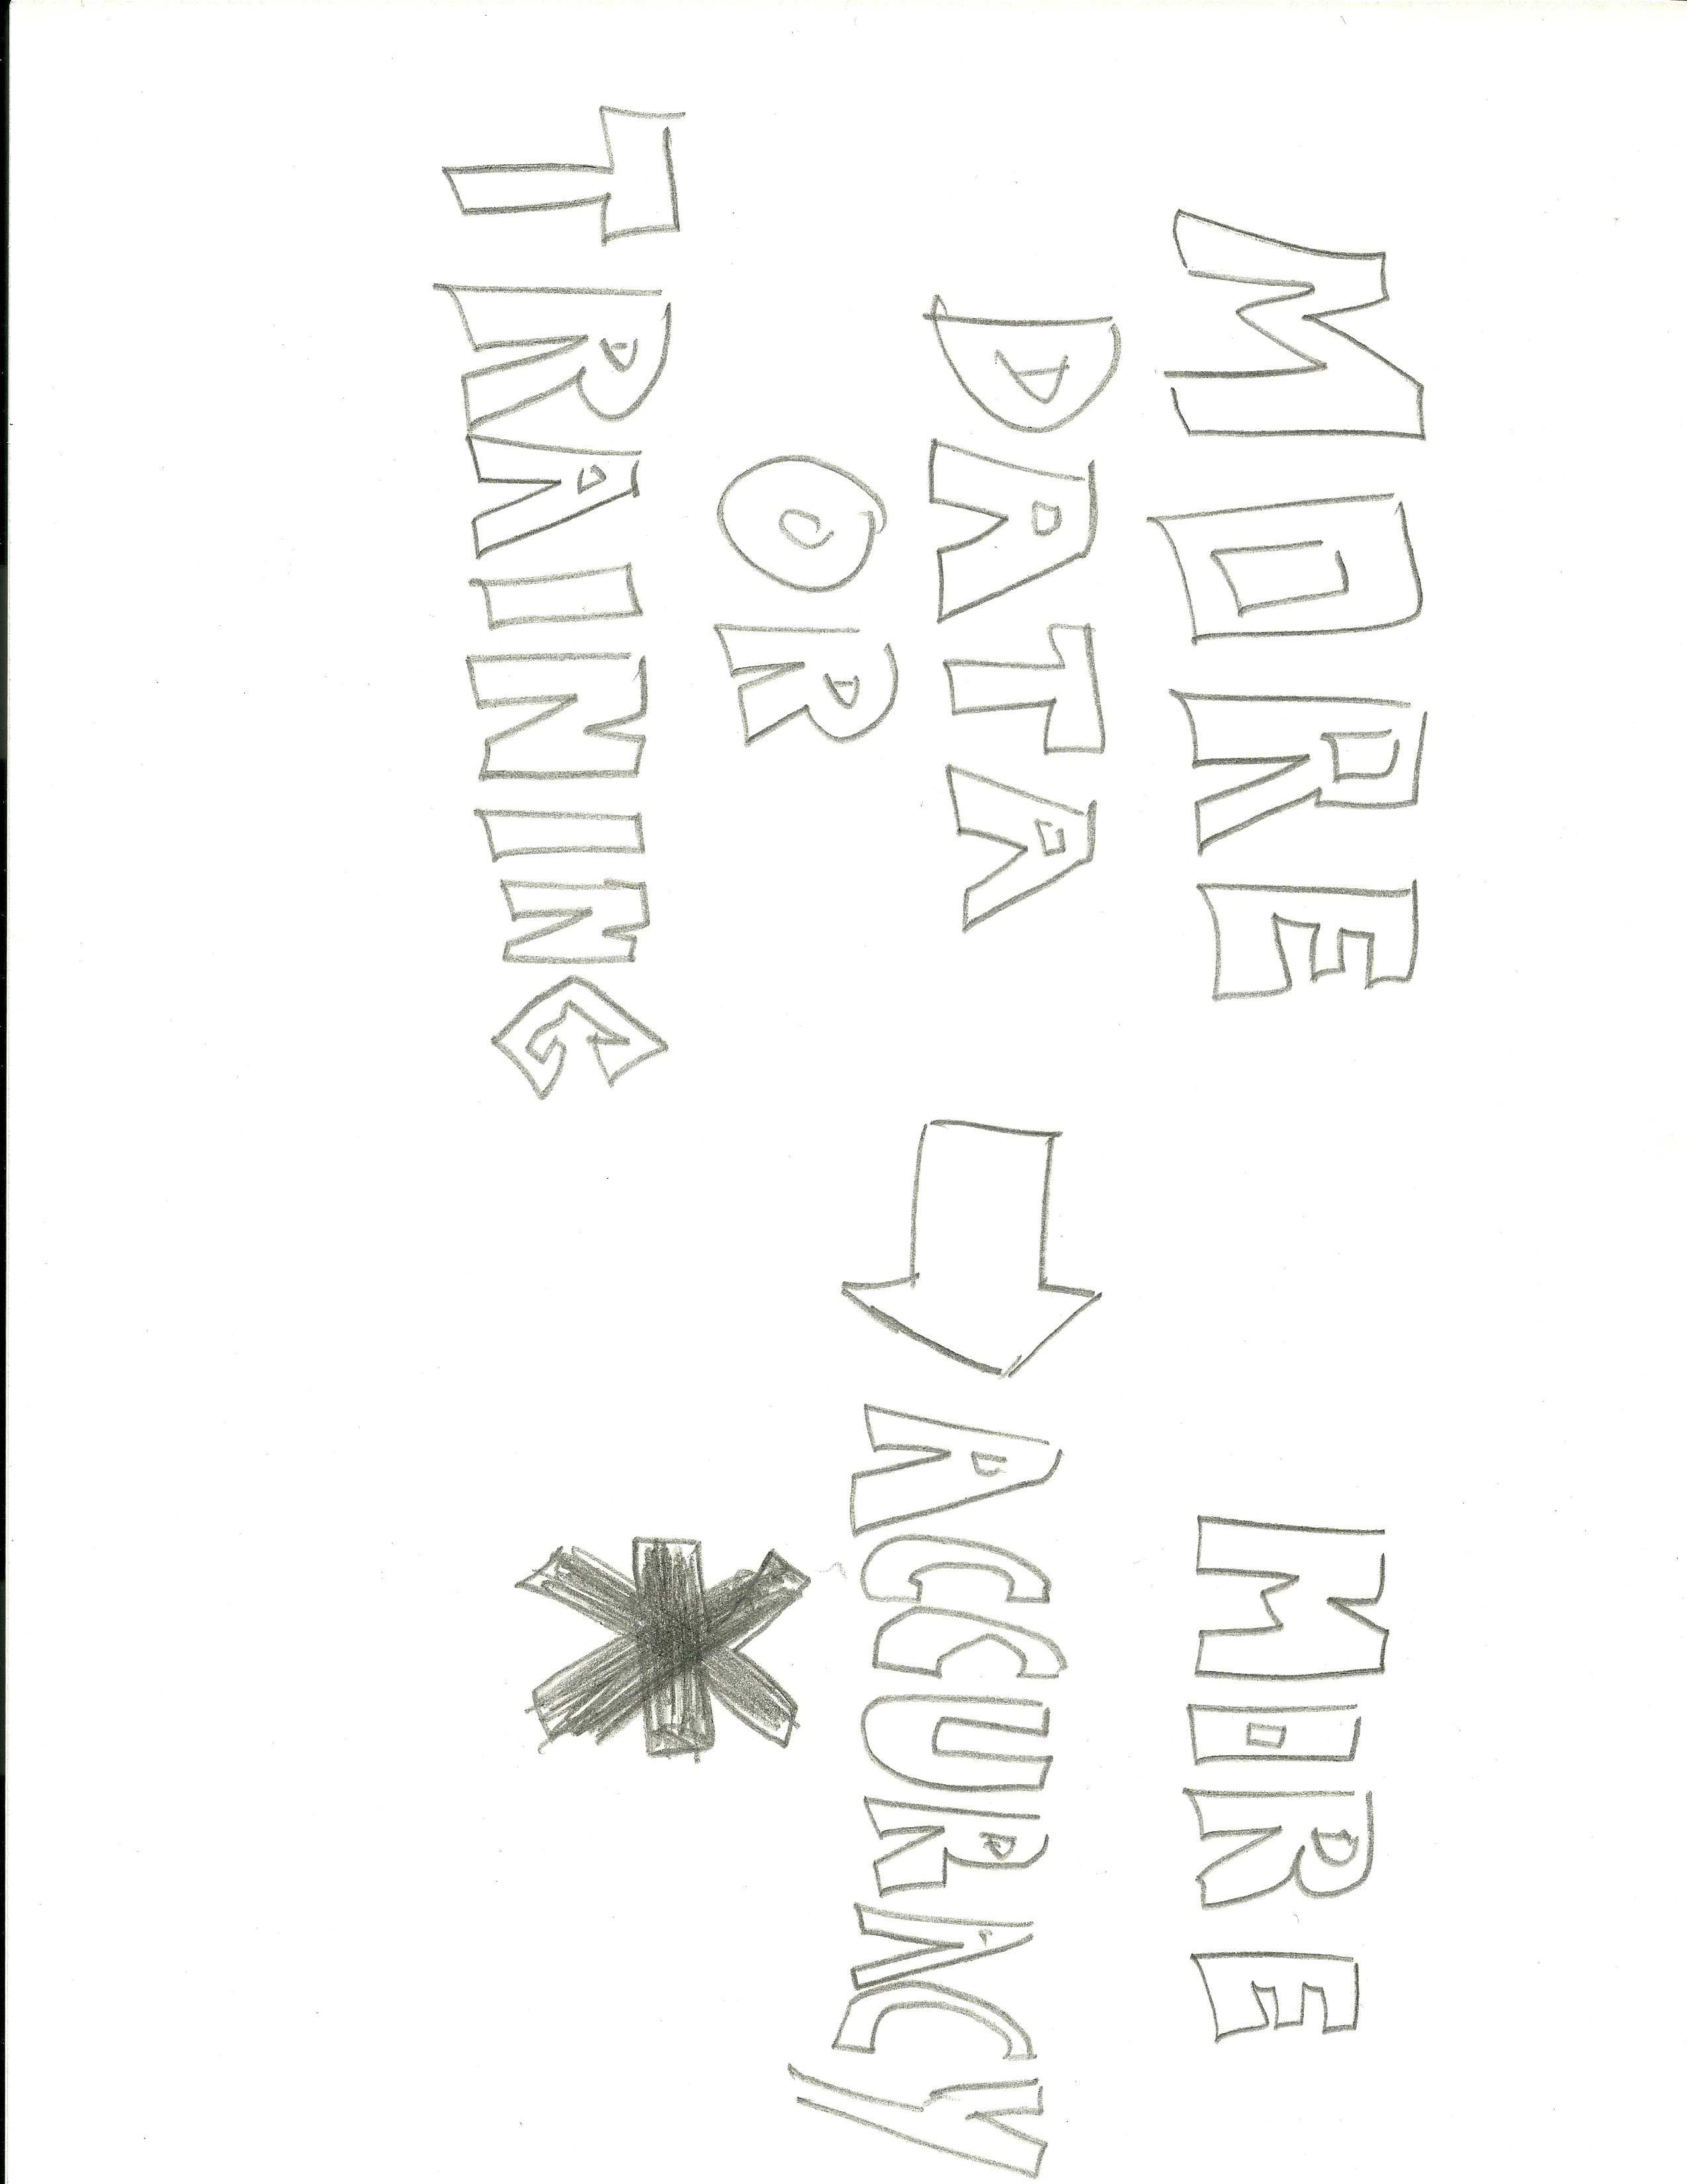 MORE
DATA
OR
TRAINING
MORE
ACCURACY
*